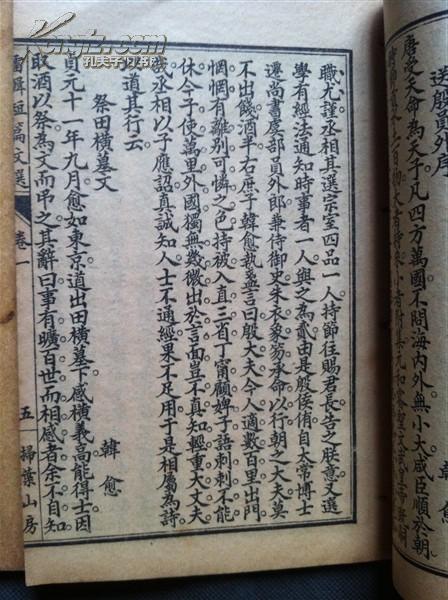 送殷員外序
韓愈
唐受天命為天子凡四方萬國不問海內外無小大咸臣順於朝
職尤謹丞相其選宗室四品一人持節往賜君長告之朕意又選
學有經法通知時事者一人與之為貳由是殷侯侑自太常博士
遷尚書虞部員外郎兼侍御史朱衣象笏承命以行朝之大夫莫
不出餞酒半右庶子韓愈執盞言曰殷大夫今人適數百里出門
惘惘有離別可憐之色持被入直三省丁甯顧婢子語刺刺不能
休今子使萬里外國獨無幾微出於言面豈不真知輕重大丈夫
哉丞相以子應詔真誠知人士不通經果不足用于是相屬為詩
以道其行云
祭田橫墓文
韓愈
貞元十一年九月愈如東京道出田橫墓下感橫義高能得士因
取酒以祭為文而弔之其辭曰事有曠百世而相感者余不自知
短篇文選 卷一 五 掃葉山房
孔夫子旧书网